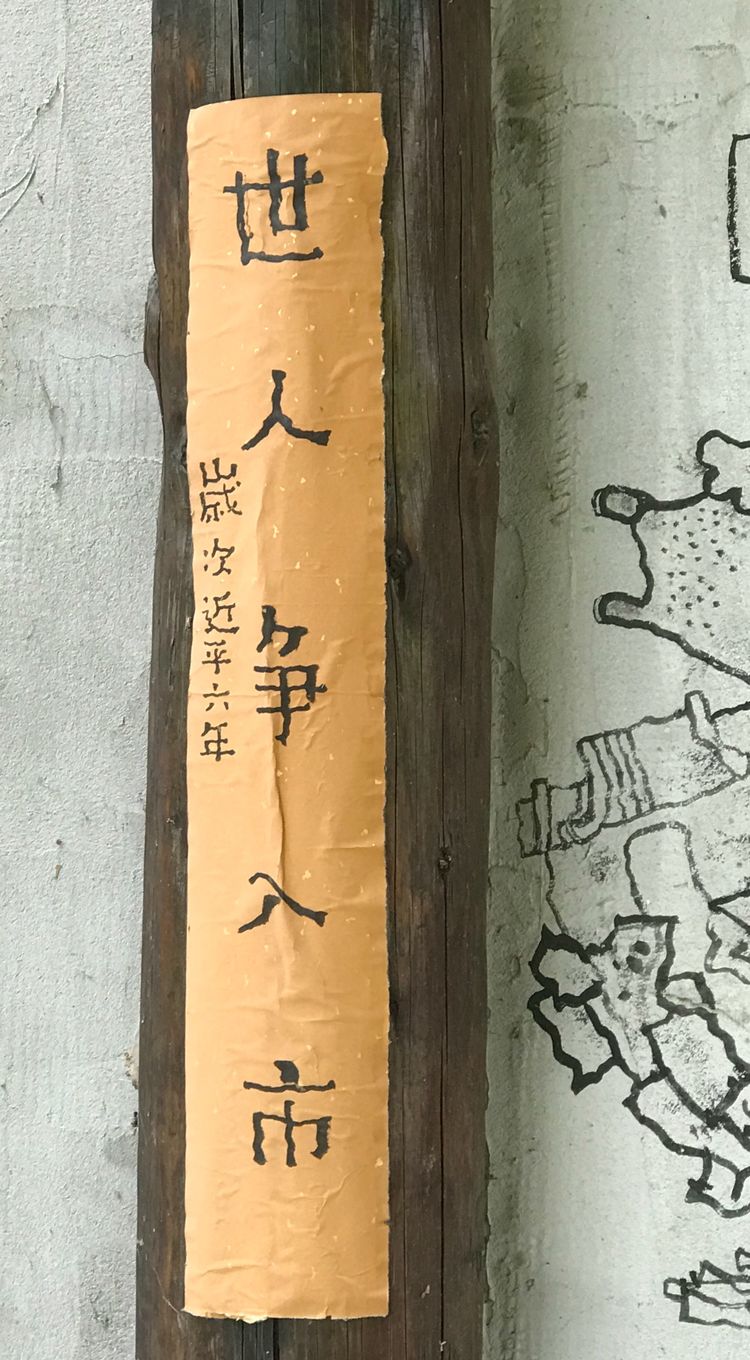 世人争入市
歲次近平六年